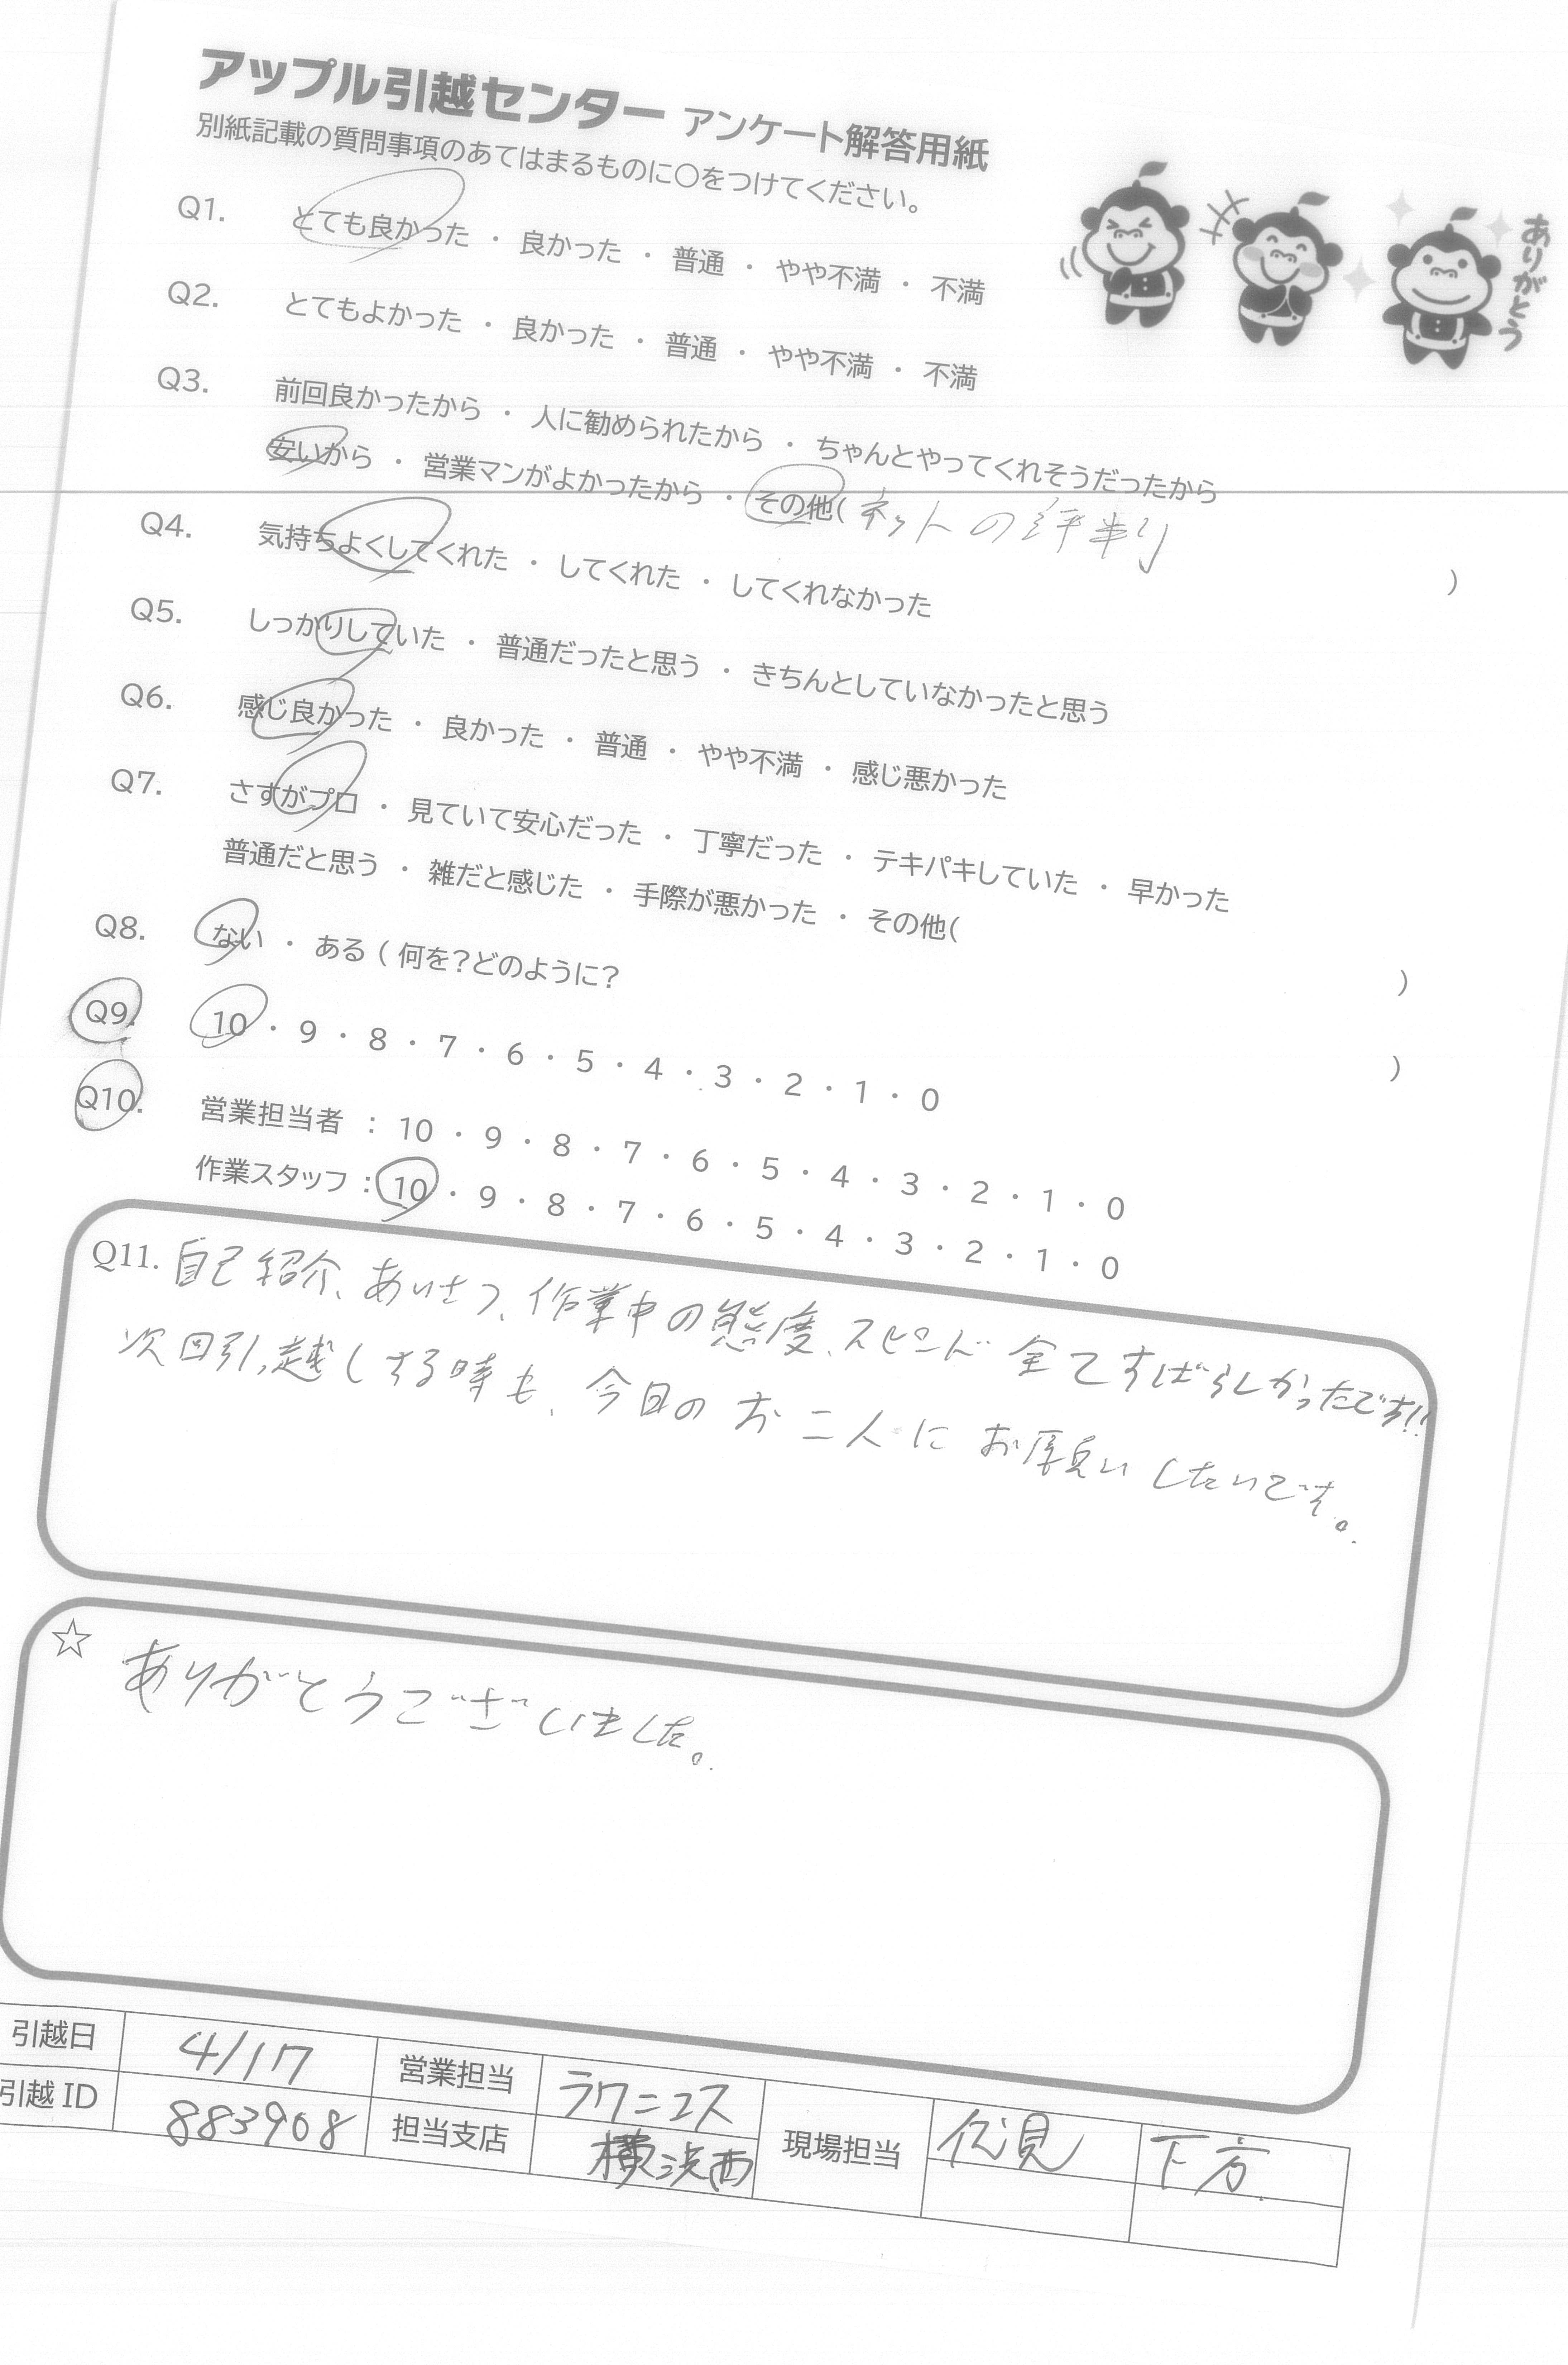 アップル引越センター アンケート解答用紙
別紙記載の質問事項のあてはまるものに○をつけてください。
ありがとう
Q1. とても良かった ・ 良かった ・ 普通 ・ やや不満 ・ 不満
Q2. とてもよかった ・ 良かった ・ 普通 ・ やや不満 ・ 不満
Q3. 前回良かったから ・ 人に勧められたから ・ ちゃんとやってくれそうだったから
安いから ・ 営業マンがよかったから ・ その他( ネットの評判 )
Q4. 気持ちよくしてくれた ・ してくれた ・ してくれなかった
Q5. しっかりしていた ・ 普通だったと思う ・ きちんとしていなかったと思う
Q6. 感じ良かった ・ 良かった ・ 普通 ・ やや不満 ・ 感じ悪かった
Q7. さすがプロ ・ 見ていて安心だった ・ 丁寧だった ・ テキパキしていた ・ 早かった
普通だと思う ・ 雑だと感じた ・ 手際が悪かった ・ その他( )
Q8. ない ・ ある ( 何を?どのように? )
Q9. 10 ・ 9 ・ 8 ・ 7 ・ 6 ・ 5 ・ 4 ・ 3 ・ 2 ・ 1 ・ 0
Q10. 営業担当者 : 10 ・ 9 ・ 8 ・ 7 ・ 6 ・ 5 ・ 4 ・ 3 ・ 2 ・ 1 ・ 0
作業スタッフ : 10 ・ 9 ・ 8 ・ 7 ・ 6 ・ 5 ・ 4 ・ 3 ・ 2 ・ 1 ・ 0
Q11. 自己紹介、あいさつ、作業中の態度、スピード 全てすばらしかったです!!
次回引っ越しする時も、今日のお二人にお願いしたいです。
☆ ありがとうございました。
引越日 4/17 営業担当 ラクニコス 現場担当 伏見 下方
引越 ID 883908 担当支店 横浜西